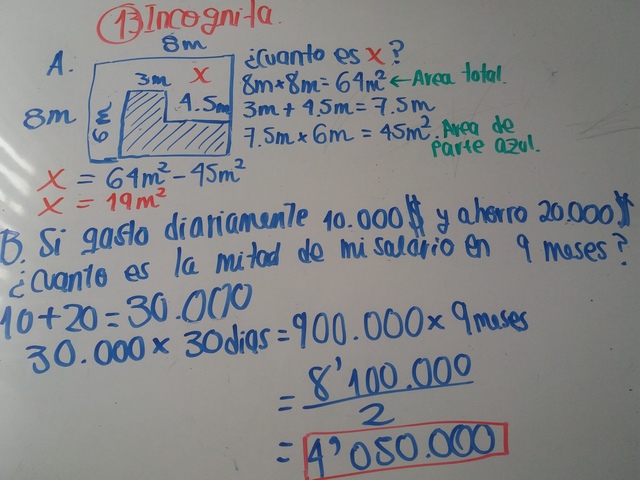 13 Incognita.
8m
A.
¿Cuanto es x?
8m
3m
x
4.5m
6m
8m*8m=64m² ← Area total.
3m+4.5m=7.5m
7.5m×6m=45m². Area de parte azul.
x = 64m²-45m²
x = 19m²
B. Si gasto diariamente 10.000$ y ahorro 20.000$
¿Cuanto es la mitad de mi salario en 9 meses?
10+20=30.000
30.000×30dias=900.000×9meses
= 8'100.000
2
= 4'050.000